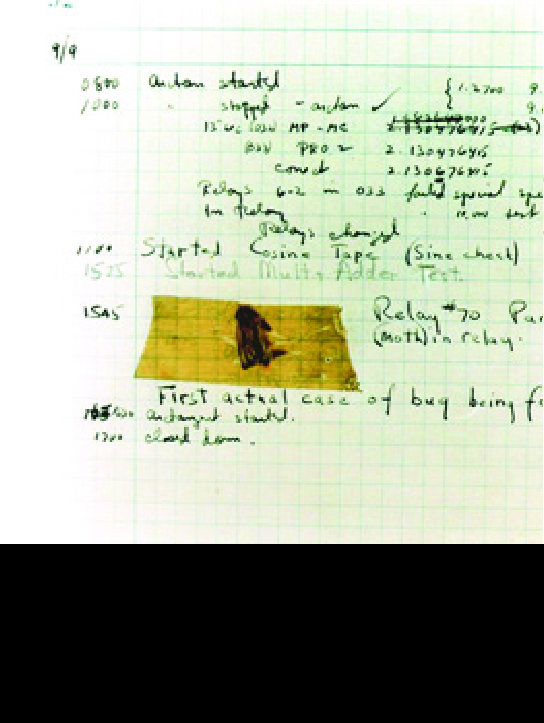 9/9
0800 Antan started { 1.2700 9.
1000 " stopped - antan ✓ 9.
13"uc (032) MP - MC 2.130476415
(033) PRO 2 2.130476415
correct 2.130676415
Relays 6-2 in 033 failed special spe
In Relay " 10,000 test
Relays changed
1100 Started Cosine Tape (Sine check)
1525 Started Mult+ Adder Test.
1545 Relay #70 Pan
(moth) in relay.
First actual case of bug being fo
1630 antangent started.
1700 closed down.